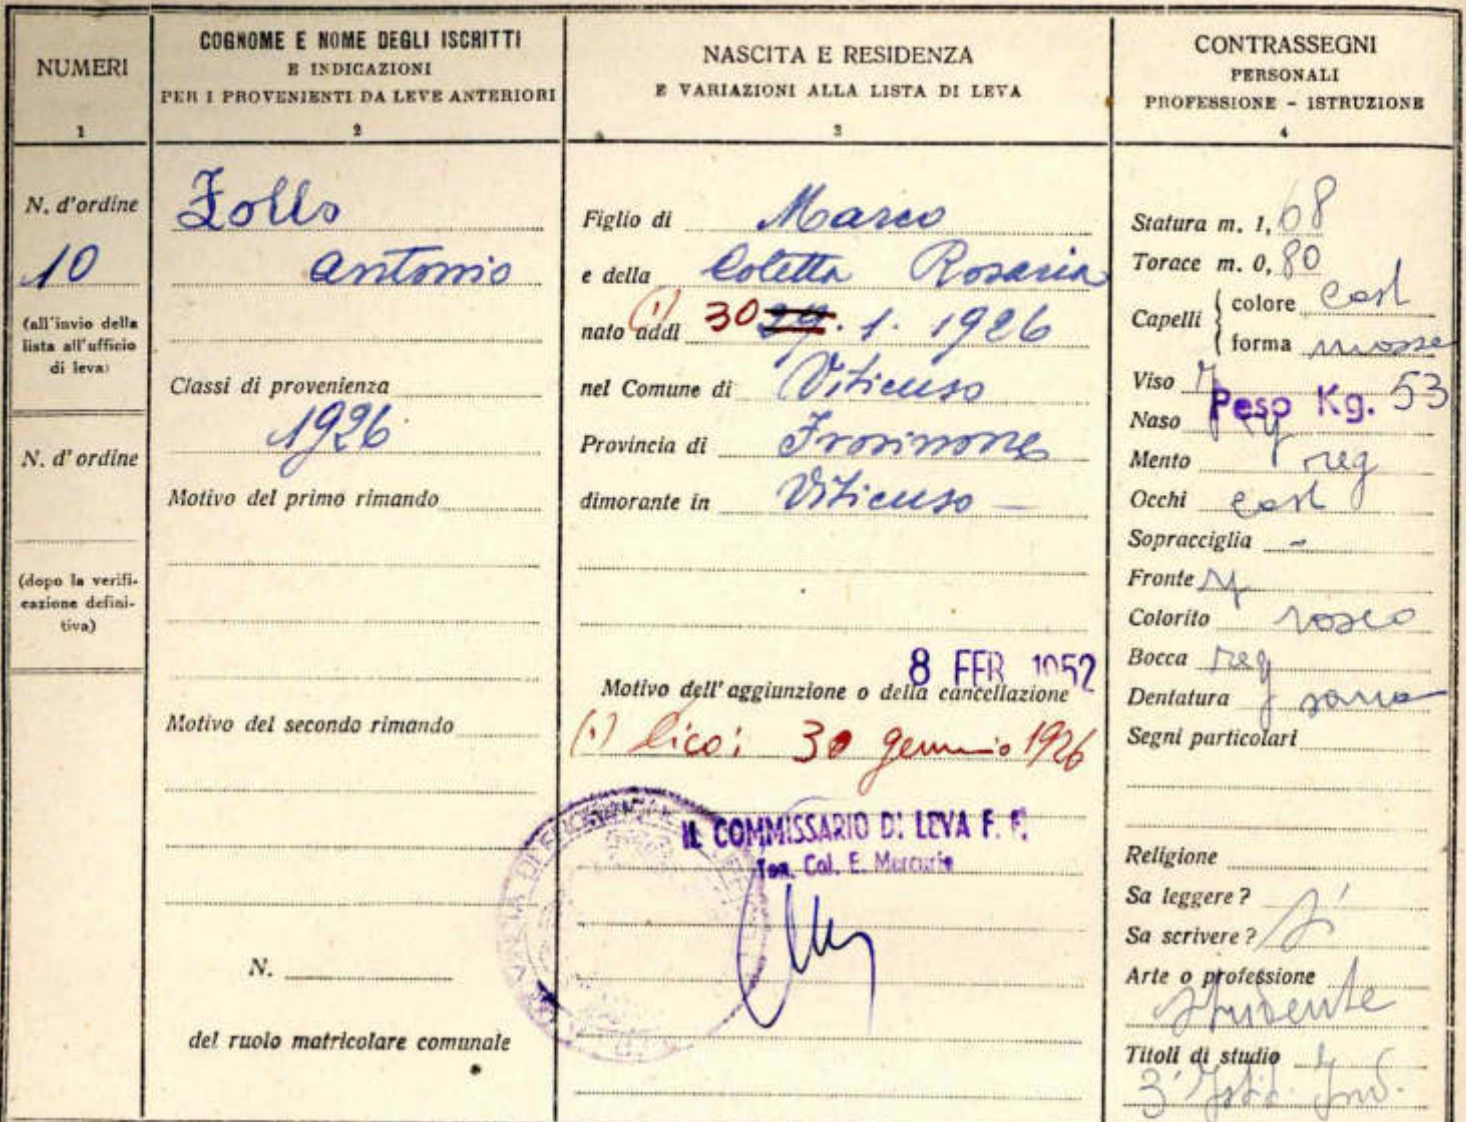 NUMERI
1
N. d'ordine
10
(all'invio della
lista all'ufficio
di leva)
N. d'ordine
(dopo la verifi-
cazione defini-
tiva)
COGNOME E NOME DEGLI ISCRITTI
E INDICAZIONI
PER I PROVENIENTI DA LEVE ANTERIORI
2
Zollo
Antonio
Classi di provenienza
1926
Motivo del primo rimando
Motivo del secondo rimando
N.
del ruolo matricolare comunale
NASCITA E RESIDENZA
E VARIAZIONI ALLA LISTA DI LEVA
3
Figlio di Marco
e della Coletta Rosaria
nato addì (1) 30 29. 1. 1926
nel Comune di Viticuso
Provincia di Frosinone
dimorante in Viticuso —
8 FEB 1952
Motivo dell'aggiunzione o della cancellazione
(1) Dico: 30 gennaio 1926
IL COMMISSARIO DI LEVA F. F.
Ten. Col. E. Mercurio
CONTRASSEGNI
PERSONALI
PROFESSIONE - ISTRUZIONE
4
Statura m. 1, 68
Torace m. 0, 80
Capelli colore cast
forma mosse
Viso
Peso Kg. 53
Naso reg
Mento reg
Occhi cast
Sopracciglia -
Fronte
Colorito roseo
Bocca reg
Dentatura sana
Segni particolari
Religione
Sa leggere?
Sa scrivere? sì
Arte o professione
studente
Titoli di studio
3ª Istit. Ind.